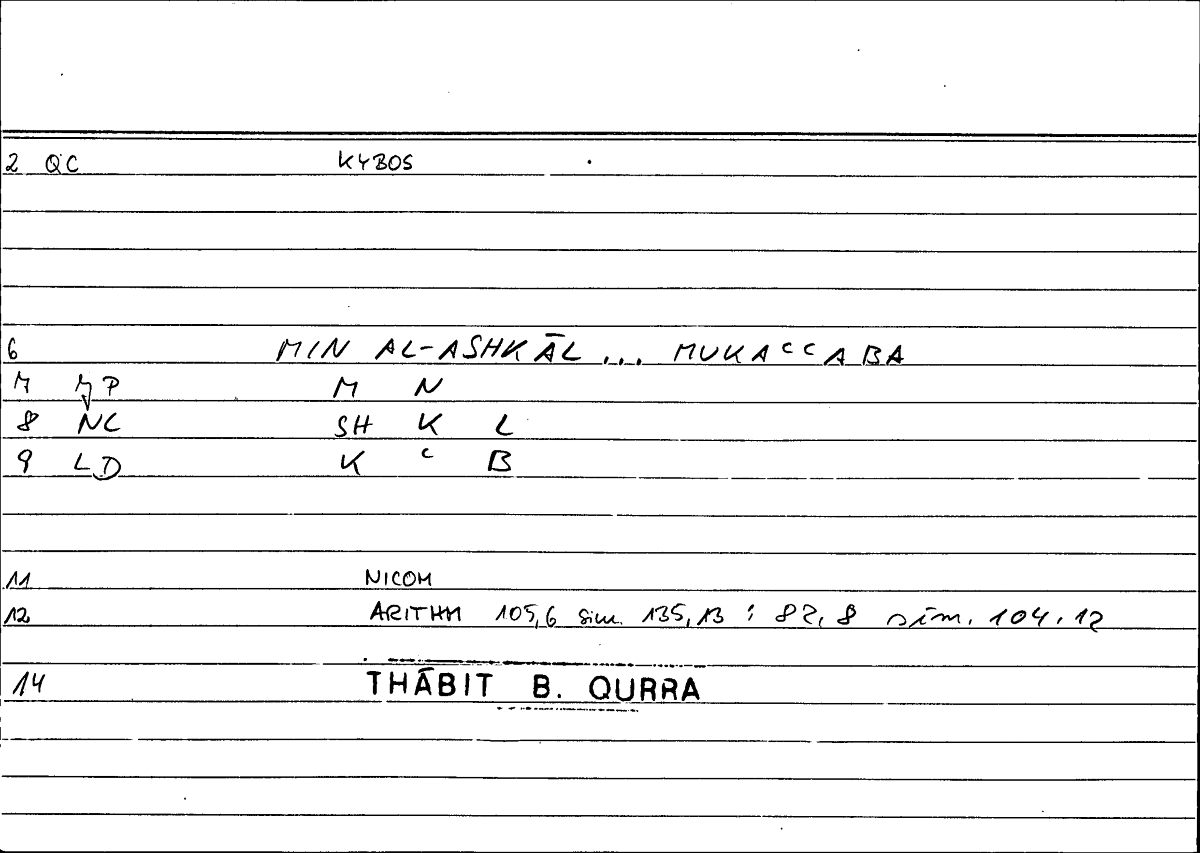 2 QC KYBOS
6 MIN AL-ASHKĀL ... MUKAᶜᶜABA
M N
8 NC SH K L
9 LD K ᶜ B
11 NICOM
12 ARITHM 105,6 sim. 135,13 : 82,8 sim. 104,12
14 THĀBIT B. QURRA